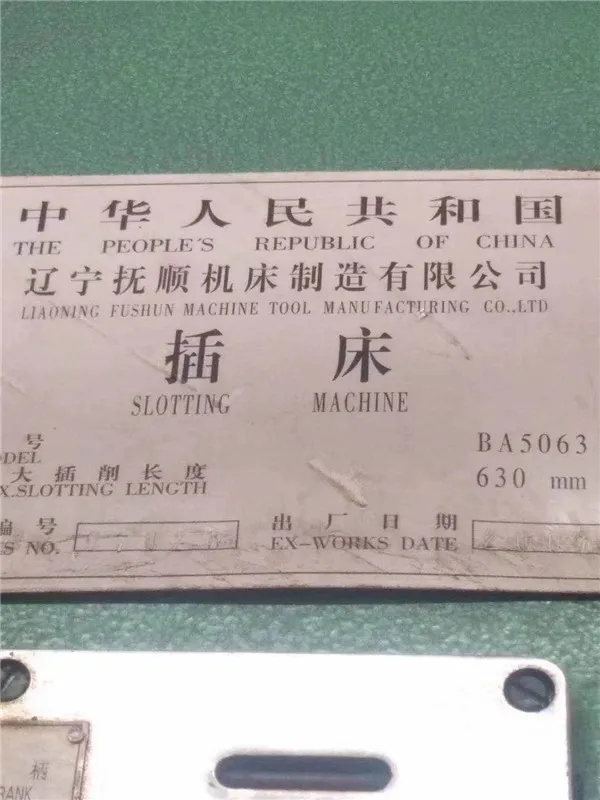 中华人民共和国
THE PEOPLE'S REPUBLIC OF CHINA
辽宁抚顺机床制造有限公司
LIAONING FUSHUN MACHINE TOOL MANUFACTURING CO.,LTD
插床
SLOTTING MACHINE
号 BA5063
DEL
大插削长度 630 mm
X.SLOTTING LENGTH
编号 出厂日期
S NO. EX-WORKS DATE
柄
RANK